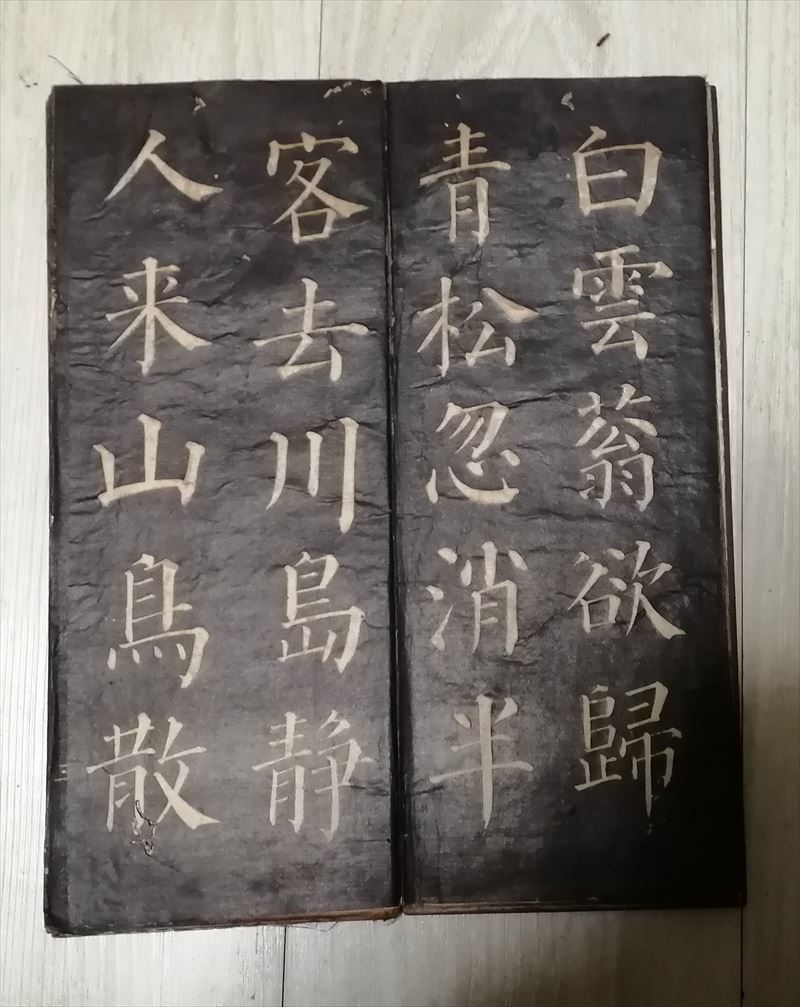 白雲蓊欲歸
青松忽消半
客去川島静
人来山鳥散